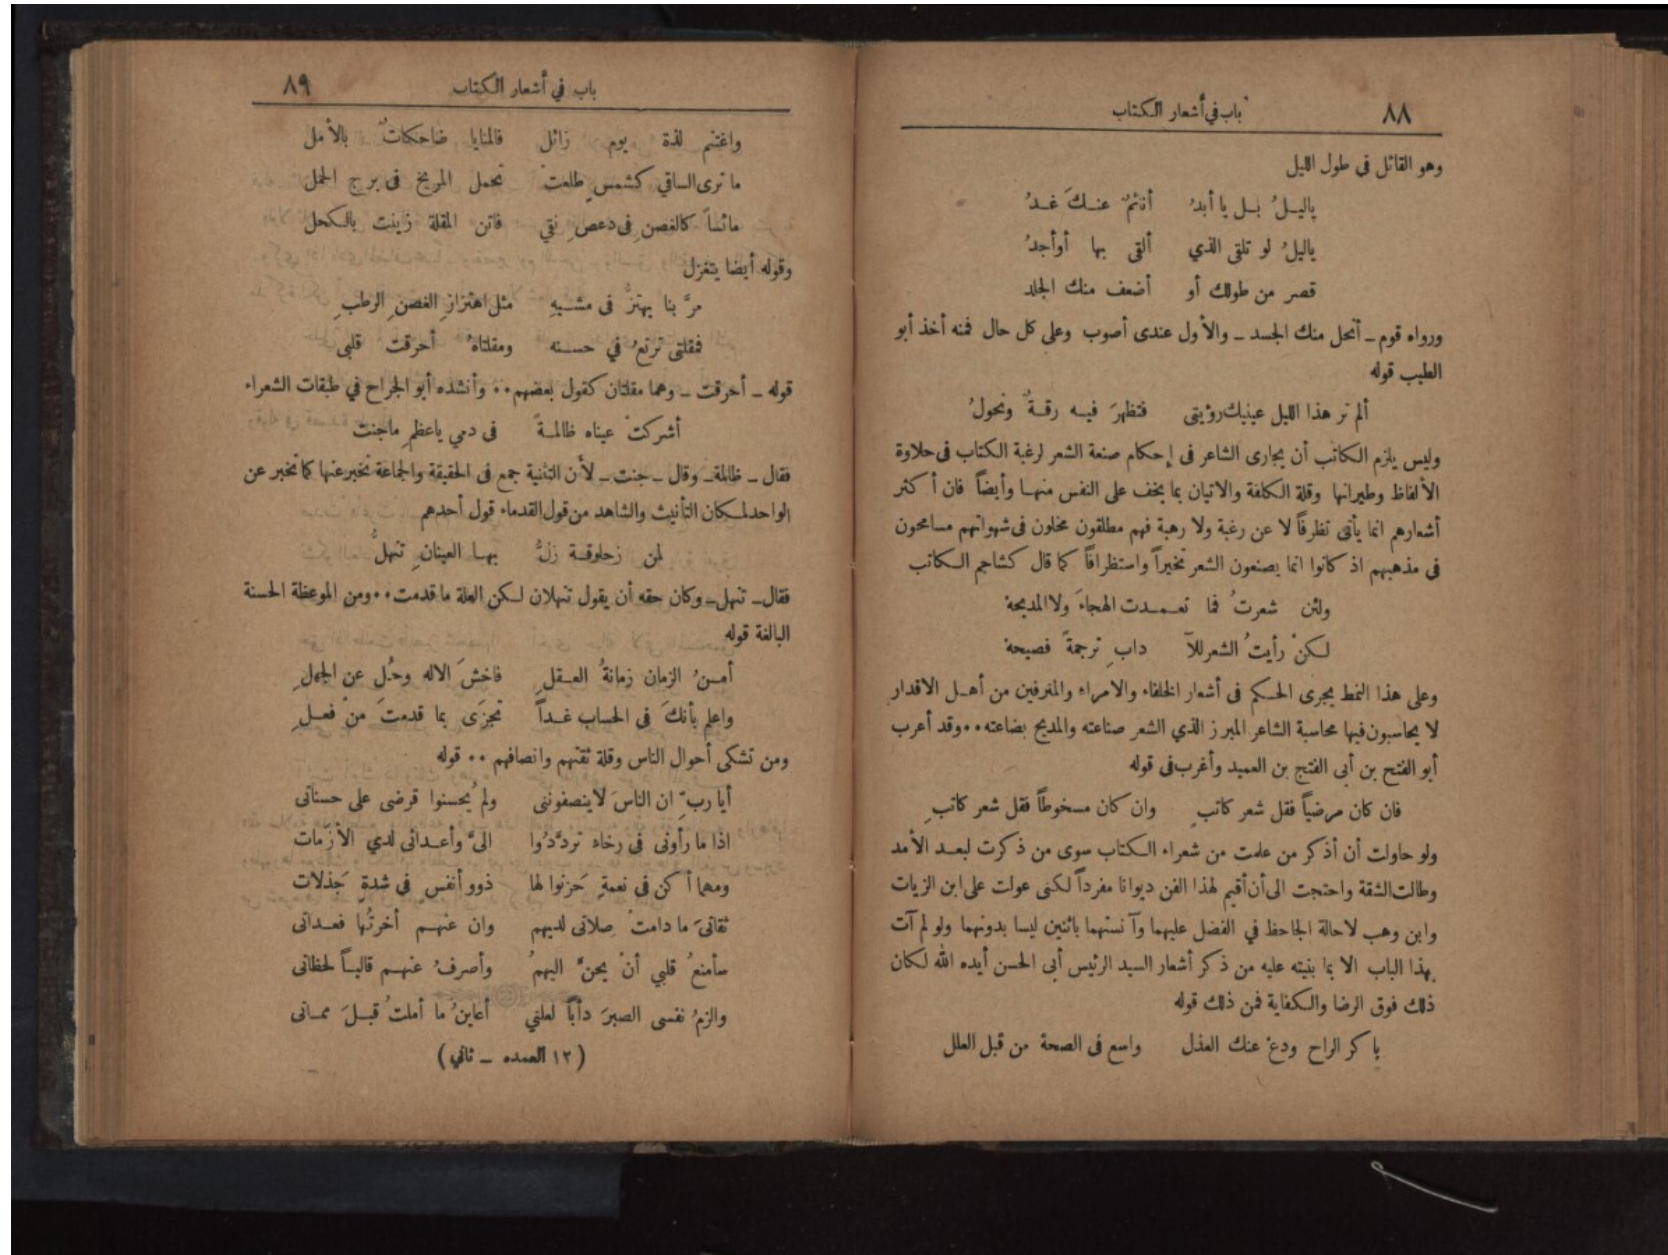 ٨٨
باب في أشعار الكتاب
وهو القائل في طول الليل
ياليلُ بل يا أبدُ أنائمٌ عنكَ غدُ
ياليلُ لو تلقى الذي ألقى بها أوأجدُ
قصر من طولك أو أضعف منك الجلد
ورواه قوم ـ أنحل منك الجسد ـ والأول عندى أصوب وعلى كل حال فمنه أخذ أبو
الطيب قوله
ألم تر هذا الليل عينيك رؤيتى فتظهرَ فيه رقةٌ ونحولُ
وليس يلزم الكاتب أن يجارى الشاعر فى إحكام صنعة الشعر لرغبة الكتاب فى حلاوة
الألفاظ وطيرانها وقلة الكلفة والاتيان بما يخف على النفس منها وأيضاً فان أكثر
أشعارهم انما يأتى تظرفاً لا عن رغبة ولا رهبة فهم مطلقون مخلون فى شهواتهم مسامحون
فى مذهبهم اذ كانوا انما يصنعون الشعر تخيراً واستظرافاً كما قال كشاجم الكاتب
ولئن شعرتُ فما تعمدت الهجاءَ ولا المديحة
لكنْ رأيتُ الشعر للآ دابِ ترجمةً فصيحة
وعلى هذا النمط يجرى الحكم فى أشعار الخلفاء والامراء والمترفين من أهل الاقدار
لا يحاسبون فيها محاسبة الشاعر المبرز الذي الشعر صناعته والمديح بضاعته٠٠وقد أعرب
أبو الفتح بن أبى الفتح بن العميد وأغرب فى قوله
فان كان مرضياً فقل شعر كاتبٍ وان كان مسخوطاً فقل شعر كاتبِ
ولو حاولت أن أذكر من علمت من شعراء الكتاب سوى من ذكرت لبعد الأمد
وطالت الشقة واحتجت الى أن أقيم لهذا الفن ديوانا مفرداً لكنى عولت على ابن الزيات
وابن وهب لاحالة الجاحظ في الفضل عليهما وآنستهما باثنين ليسا بدونهما ولو لم آت
بهذا الباب الا بما بنيته عليه من ذكر أشعار السيد الرئيس أبى الحسن أيده الله لكان
ذلك فوق الرضا والكفاية فمن ذلك قوله
باكر الراح ودعْ عنك العذل واسع فى الصحة من قبل العلل
باب في أشعار الكتاب
٨٩
واغتنم لذة يوم زائل فالمنايا ضاحكاتٌ بالأمل
ما ترى الساقي كشمسٍ طلعتْ تحمل المريخ فى برج الحمل
مائساً كالغصنِ فى دعصٍ نقي فاتن المقلة زينت بالكحل
وقوله أيضا يتغزل
مرَّ بنا يهتزُّ فى مشيهِ مثل اهتزازِ الغصنِ الرطبِ
فمقلتى ترتعُ في حسنه ومقلتاهُ أحرقت قلبى
قوله ـ أحرقت ـ وهما مقلتان كقول بعضهم٠٠ وأنشده أبو الجراح في طبقات الشعراء
أشركتْ عيناه ظالمةً فى دمي ياعظمِ ماجنت
فقال ـ ظالمة ـ وقال ـ جنت ـ لأن التثنية جمع فى الحقيقة والجماعة تخبر عنها كما تخبر عن
الواحد لمكان التأنيث والشاهد من قول القدماء قول أحدهم
لمن زحلوقة زلُّ بها العينانِ تنهلُّ
فقال ـ تنهل ـ وكان حقه أن يقول تنهلان لكن العلة ما قدمت٠٠ومن الموعظة الحسنة
البالغة قوله
أمنُ الزمان زمانةُ العقلِ فاخشَ الاله وحُل عن الجهلِ
واعلم بأنكَ فى الحساب غداً تجزَى بما قدمتَ منْ فعلِ
ومن تشكى أحوال الناس وقلة ثقتهم وانصافهم ٠٠ قوله
أيا ربِّ ان الناسَ لاينصفوننى ولم يُحسنوا قرضى على حسناتى
اذا ما رأونى فى رخاء تردَّدُوا الىَّ وأعدائى لدي الأزَمات
ومهما أكن فى نعمةٍ حَزنوا لها ذوو أنفسٍ في شدةٍ جَذلات
ثقاتىَ ما دامتْ صِلاتى لديهم وان عنهم أخرتُها فعداتى
سأمنعُ قلبي أنْ يحنَّ اليهمُ وأصرفُ عنهم قالياً لحظاتى
والزمُ نفسى الصبرَ دأباً لعلني أعاينُ ما أملتُ قبلَ مماتى
(١٢ العمده ـ ثاني)